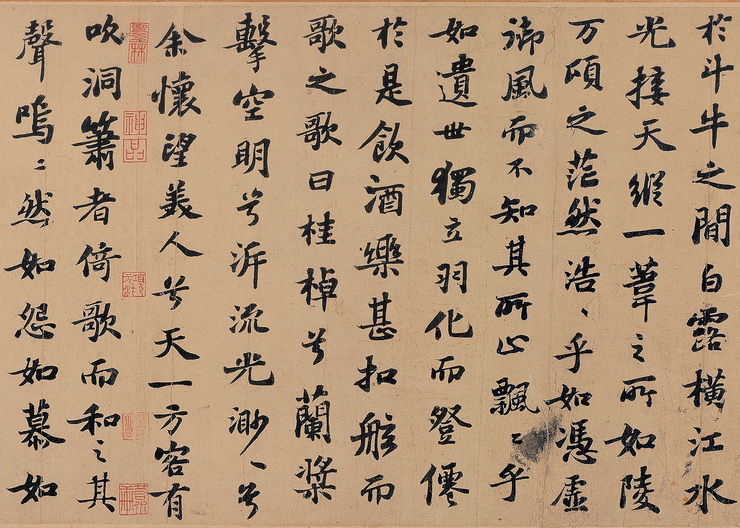 於斗牛之間白露橫江水
光接天縱一葦之所如陵
万頃之茫然浩〻乎如憑虛
御風而不知其所止飄〻乎
如遺世獨立羽化而登僊
於是飲酒樂甚扣舷而
歌之歌曰桂棹兮蘭槳
擊空明兮泝流光渺〻兮
余懷望美人兮天一方客有
吹洞簫者倚歌而和之其
聲嗚〻然如怨如慕如
墨林
神品